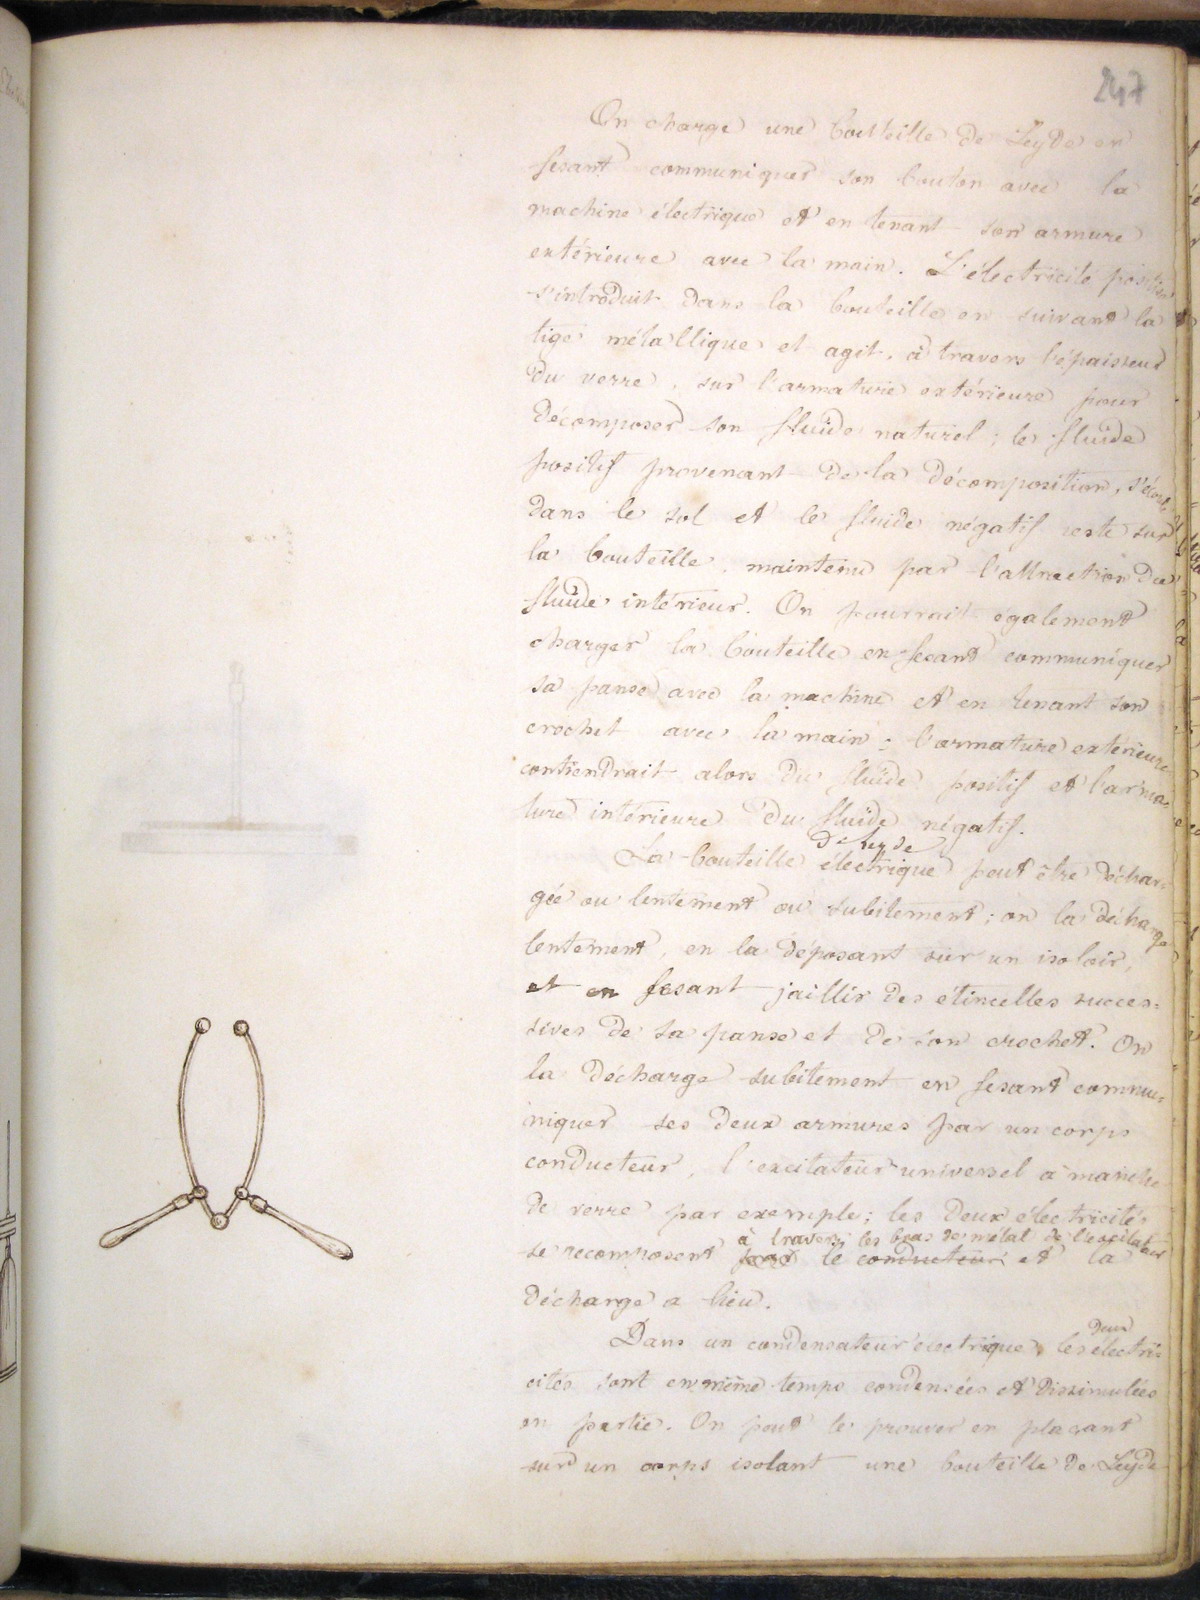 247
On charge une bouteille de Leyde en
fesant communiquer son bouton avec la
machine électrique et en tenant son armure
extérieure avec la main. L'électricité positive
s'introduit dans la bouteille en suivant la
tige métallique et agit, à travers l'épaisseur
du verre, sur l'armature extérieure pour
décomposer son fluide naturel ; le fluide
positif provenant de la décomposition, s'écoule
dans le sol et le fluide négatif reste sur
la bouteille, maintenu par l'attraction du
fluide intérieur. On pourrait également
charger la bouteille en fesant communiquer
sa panse avec la machine et en tenant son
crochet avec la main ; l'armature extérieure
contiendrait alors du fluide positif et l'arma-
ture intérieure du fluide négatif.
de leyde
La bouteille électrique peut être déchar-
gée ou lentement ou subitement ; on la décharge
lentement, en la déposant sur un isoloir,
et en fesant jaillir des étincelles succes=
sives de sa panse et de son crochet. On
la décharge subitement en fesant commu=
niquer ses deux armures par un corps
conducteur, l'excitateur universel à manche
de verre par exemple ; les deux électricités
à travers les bras de métal de l'excitateur
se recomposent par le conducteur et la
décharge a lieu.
deux
Dans un condensateur électrique, les électri=
cités sont en même temps condensées et dissimulées
en partie. On peut le prouver en plaçant
sur un corps isolant une bouteille de Leyde